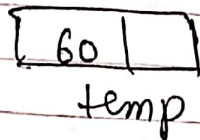 60
temp